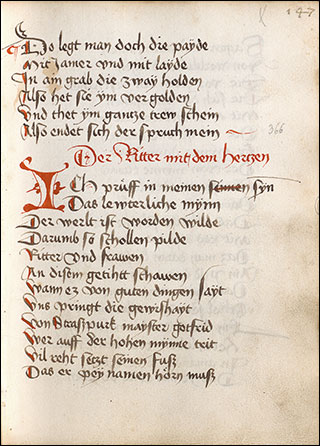 147
Do legt man doch die payde
Mit jamer vnd mit layde
In ain grab die zway holden
Also het sie ym vergolden
Vnd thet ym gantze trew schein
Also endet sich der spruch mein
366
Der Ritter mit dem hertzen
ICh prüff in meinen sinnen syn
Das lewterliche mynn
Der werlt ist worden wilde
Darumb so schollen pilde
Ritter vnd frawen
An disem getihtt schawen
Wann ez von guten dingen sayt
Vns pringt die gewishayt
Von Straspurk mayster gotfrid
Wer auff der hohen mynne trit
Vil reht setzt seinen fusz
Das er pey namen hörn musz